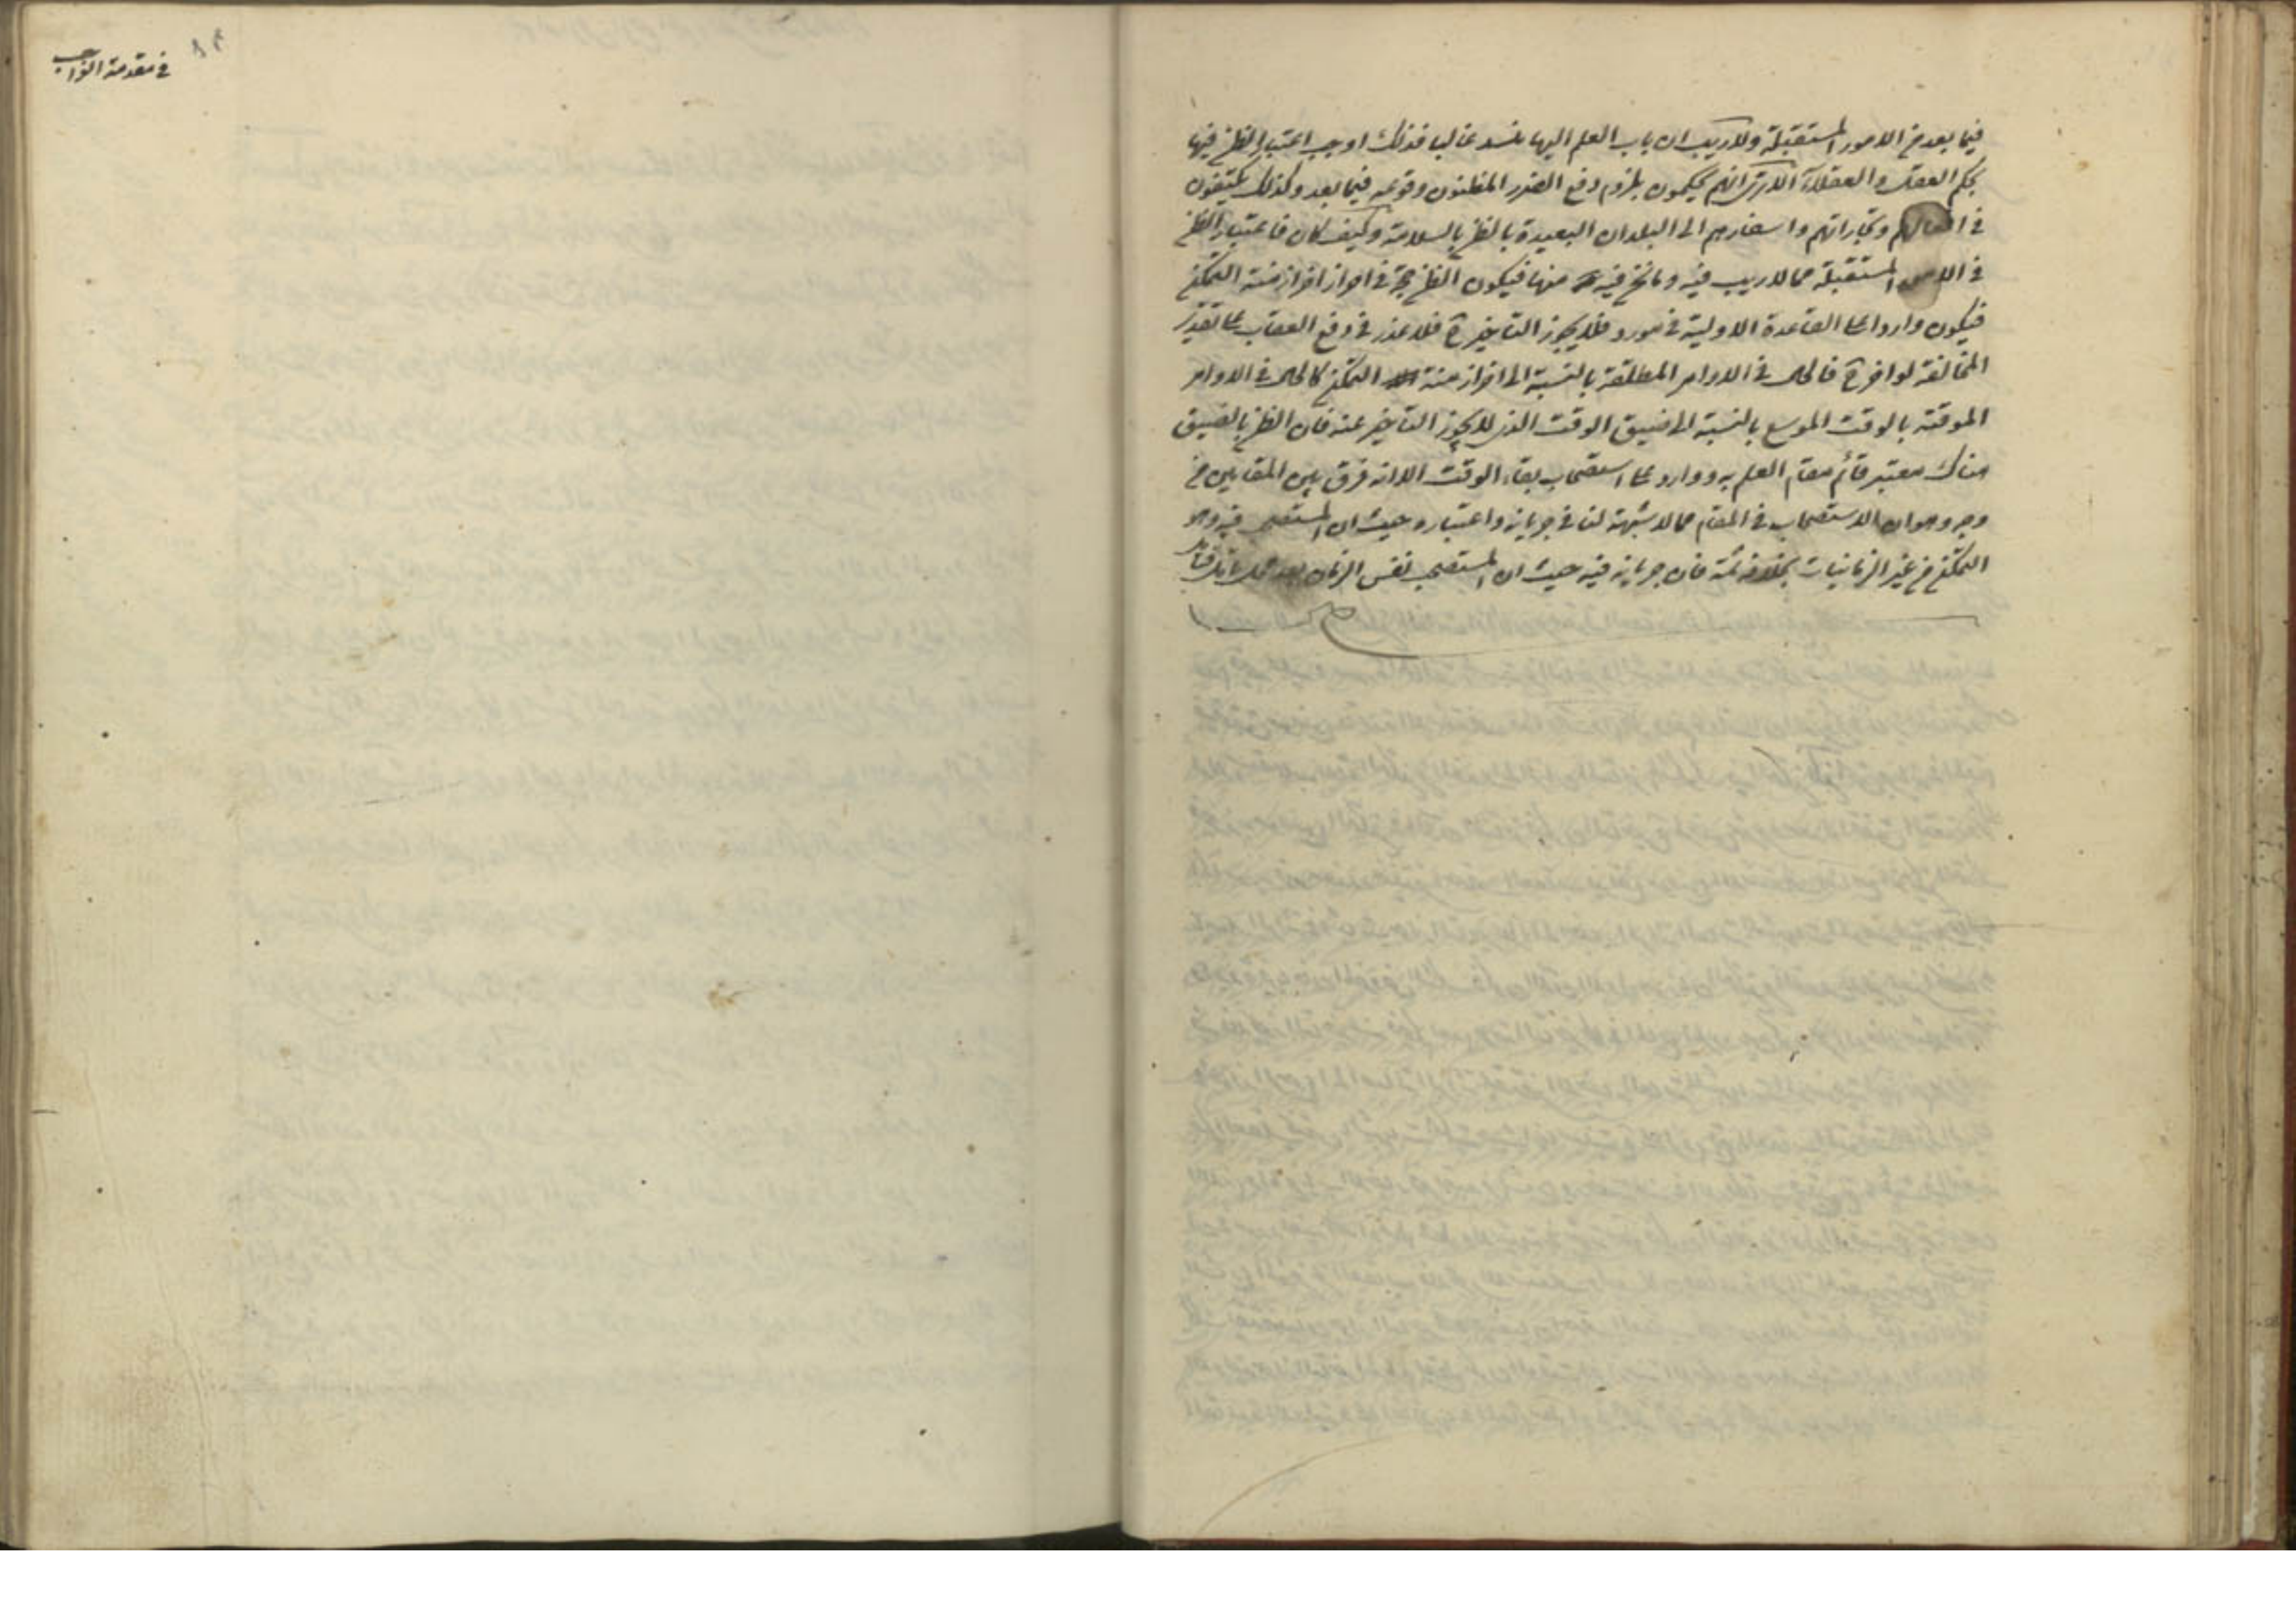 فيما بعد من الامور المستقبلة ولا ريب ان باب العلم اليها منسد غالبا فذلك اوجب اعتبار الظن فيها
بحكم العقل والعقلاء الا ترى انهم يحكمون بلزوم دفع الضرر المظنون وقوعه فيما بعد وكذلك يكتفون
في افعالهم وتجاراتهم واسفارهم الى البلدان البعيدة بالظن بالسلامة وكيف كان فاعتبار الظن
في الامور المستقبلة مما لا ريب فيه وما نحن فيه منها فيكون الظن حجة في احراز اخر ازمنة التمكن
فيكون واردا على القاعدة الاولية في مورده فلا يجوز التاخير ح فلا عذر في دفع العقاب على تقدير
المخالفة لو اخر ح فالحال في الاوامر المطلقة بالنسبة الى اخر ازمنة التمكن كالحال في الاوامر
الموقتة بالوقت الموسع بالنسبة الى ضيق الوقت الذي لا يجوز التاخير عنه فان الظن بالضيق
هناك معتبر قائم مقام العلم به ووارد على استصحاب بقاء الوقت الا انه فرق بين المقامين من
وجه وهو ان الاستصحاب في المقام مما لا شبهة لنا في جريانه واعتباره حيث ان المستصحب فيه وهو
التمكن من غير الزمانيات بخلافه ثمة فان جريانه فيه حيث ان المستصحب نفس الزمان
في مقدمة الواجب